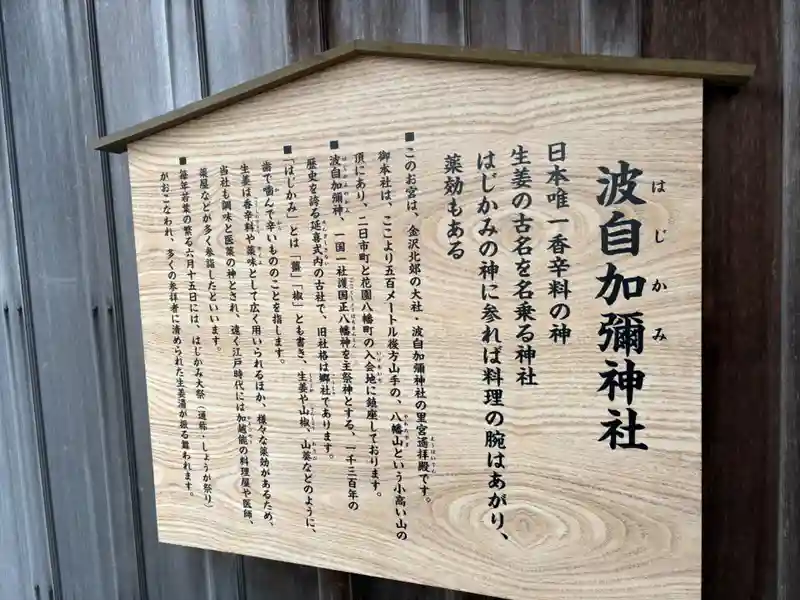 はじかみ
波自加彌神社
日本唯一香辛料の神
生姜の古名を名乗る神社
はじかみの神に参れば料理の腕はあがり、
薬効もある
■このお宮は、金沢北郊の大社・波自加彌神社の里宮遥拝殿です。
御本社は、ここより五百メートル後方山手の、八幡山という小高い山の
頂にあり、二日市町と花園八幡町の入会地に鎮座しております。
■波自加彌神、一国一社護国正八幡神を主祭神とする、一千三百年の
歴史を誇る延喜式内の古社で、旧社格は郷社であります。
■「はじかみ」とは「薑」「椒」とも書き、生姜や山椒、山葵などのように、
歯で噛んで辛いもののことを指します。
生姜は香辛料や薬味として広く用いられるほか、様々な薬効があるため、
当社も調味と医薬の神とされ、遠く江戸時代には加越能の料理屋や医師、
薬屋などが多く参詣したといいます。
■毎年若葉の繁る六月十五日には、はじかみ大祭（通称・しょうが祭り）
がおこなわれ、多くの参拝者に清められた生姜湯が振る舞われます。